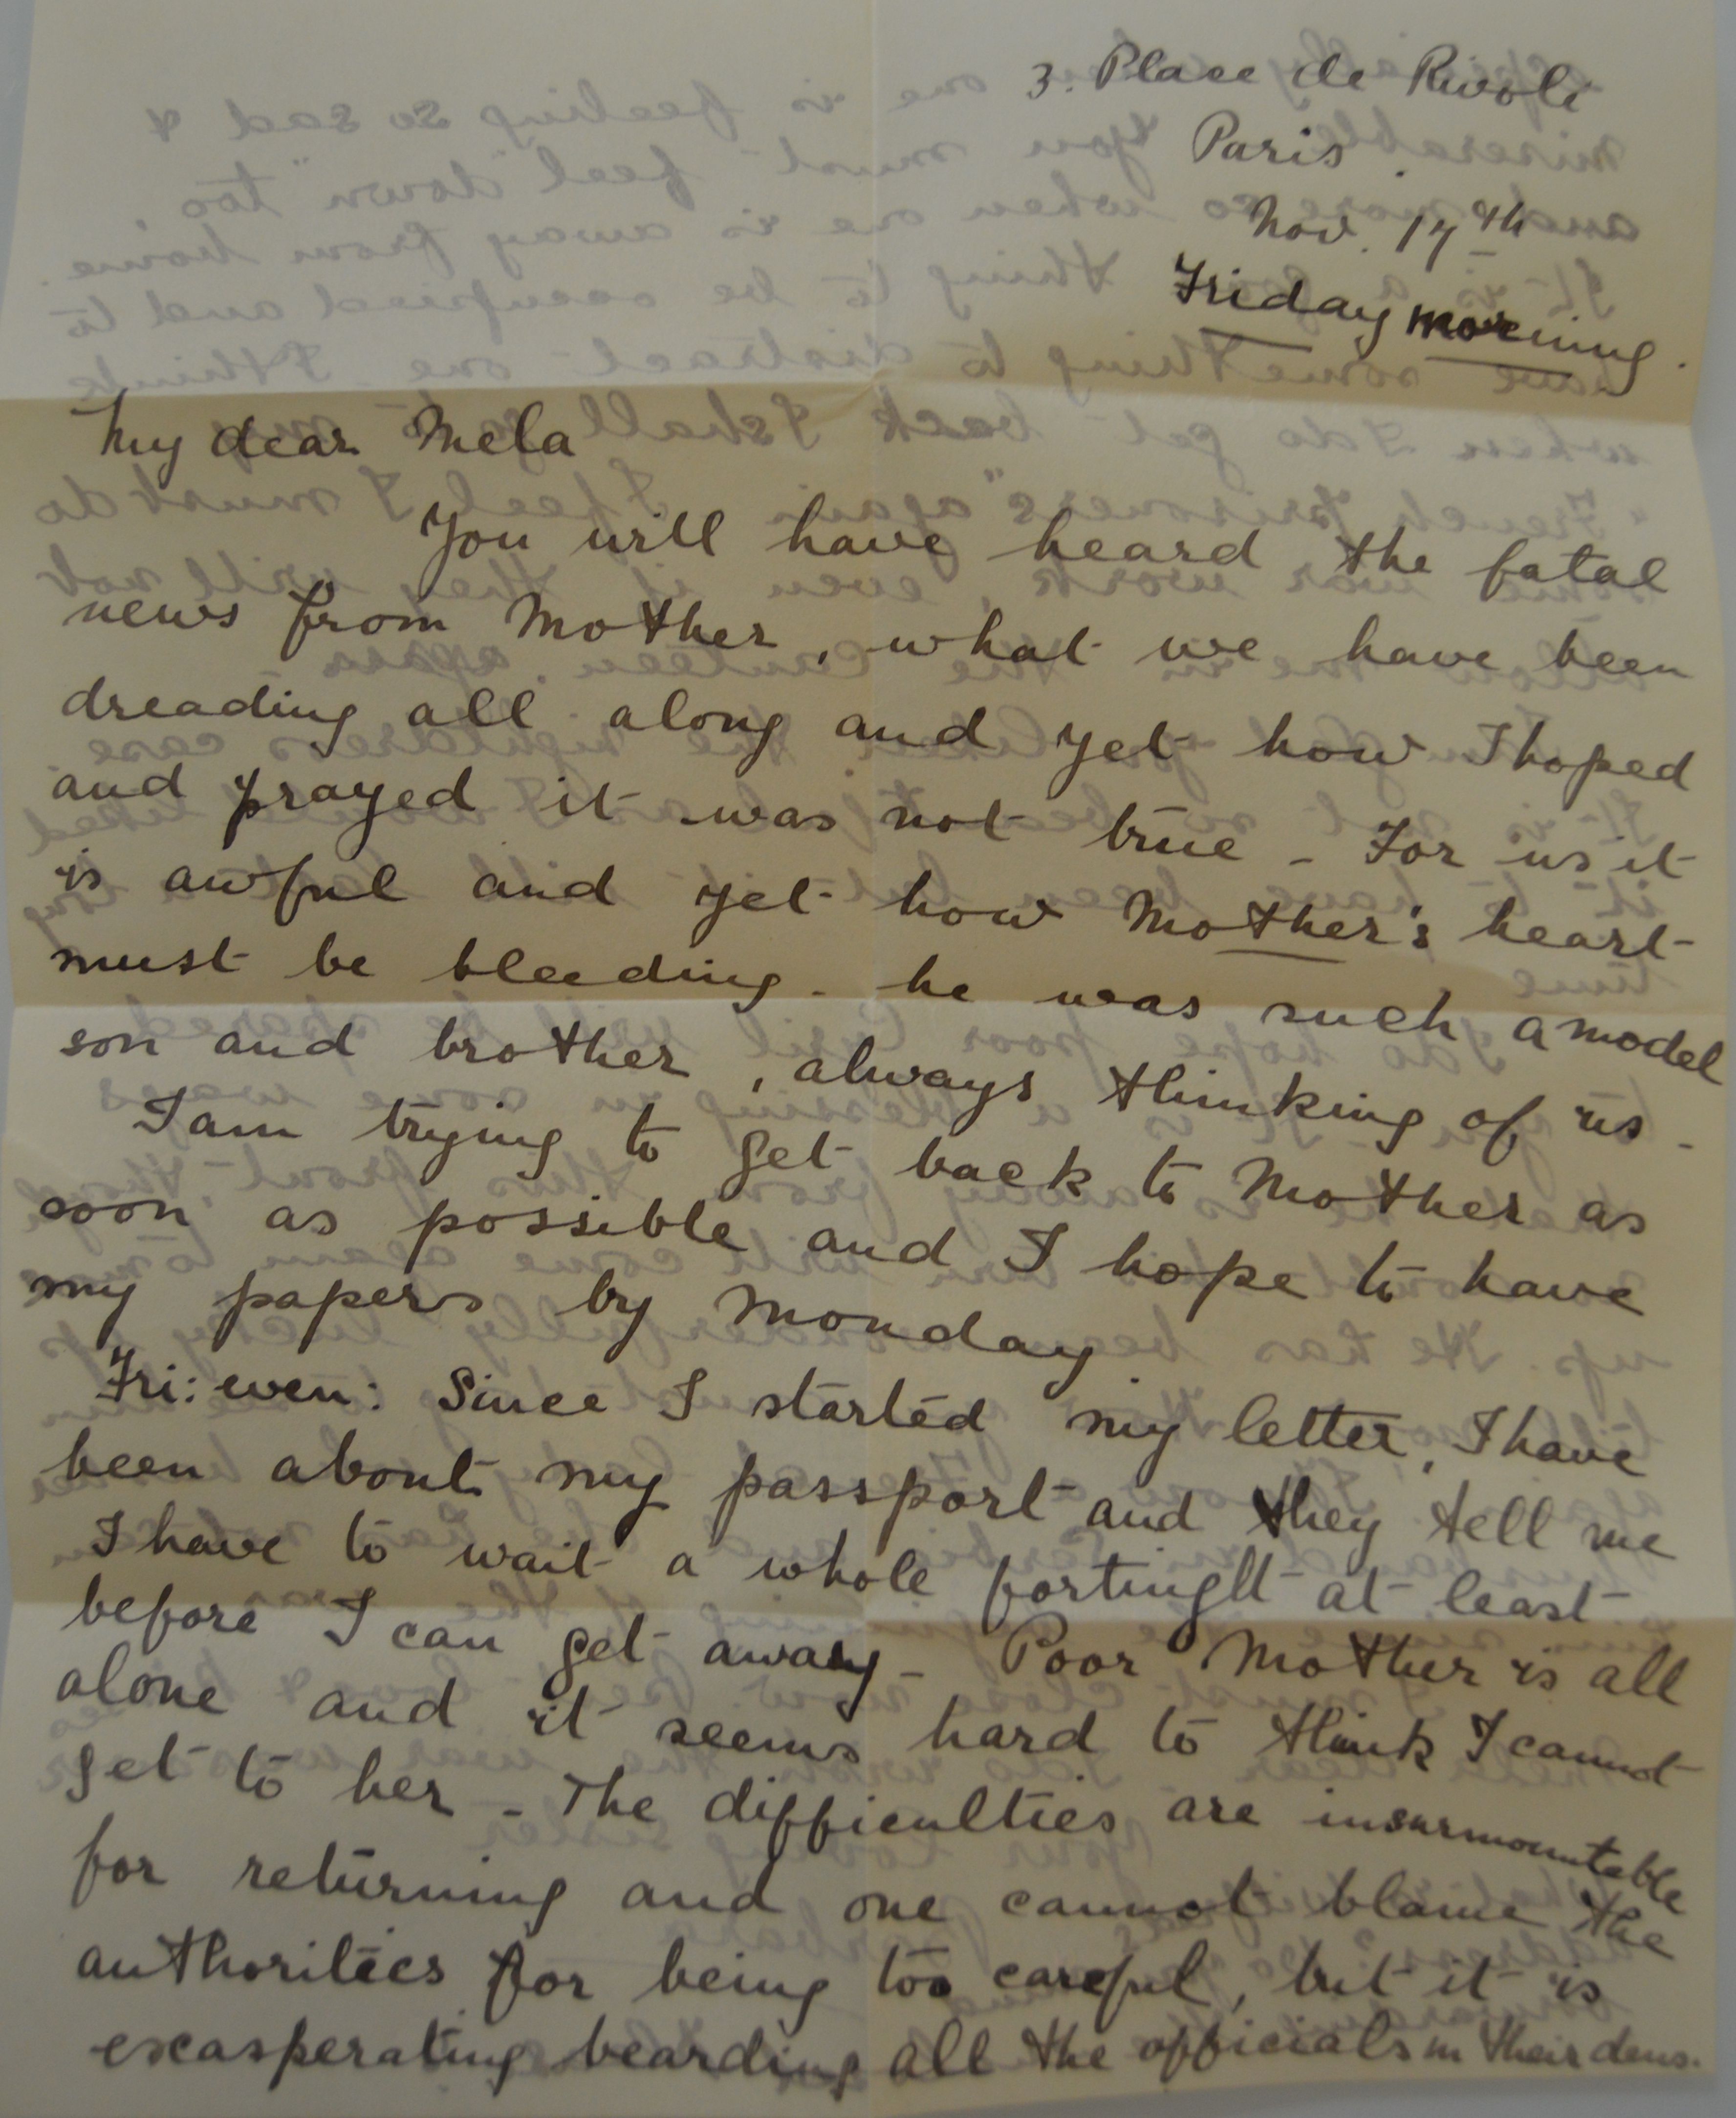 3. Place de Rivoli
Paris.
Nov. 17th
Friday morning.
My dear Mela
You will have heard the fatal
news from Mother, what we have been
dreading all along and yet how I hoped
and prayed it was not true - For us it
is awful and yet how Mother's heart
must be bleeding - he was such a model
son and brother, always thinking of us -
I am trying to get back to Mother as
soon as possible and I hope to have
my papers by Monday
Fri: even: Since I started my letter, I have
been about my passport and they tell me
I have to wait a whole fortinght at least
before I can get away - Poor Mother is all
alone and it seems hard to think I cannot
get to her - The difficulties are insurmountable
for returning and one cannot blame the
authorities for being too careful, but it is
exasperating bearding all the officials in their dens.